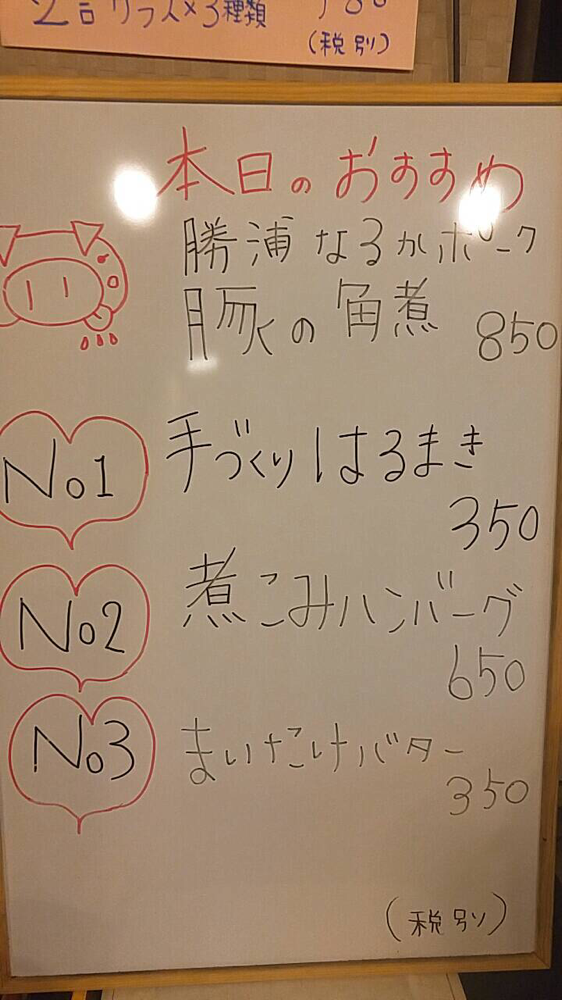 2合グラス×3種類
(税別)
本日のおすすめ
勝浦なるかポーク
豚の角煮 850
No1 手づくりはるまき
350
No2 煮こみハンバーグ
650
No3 まいたけバター
350
(税別)